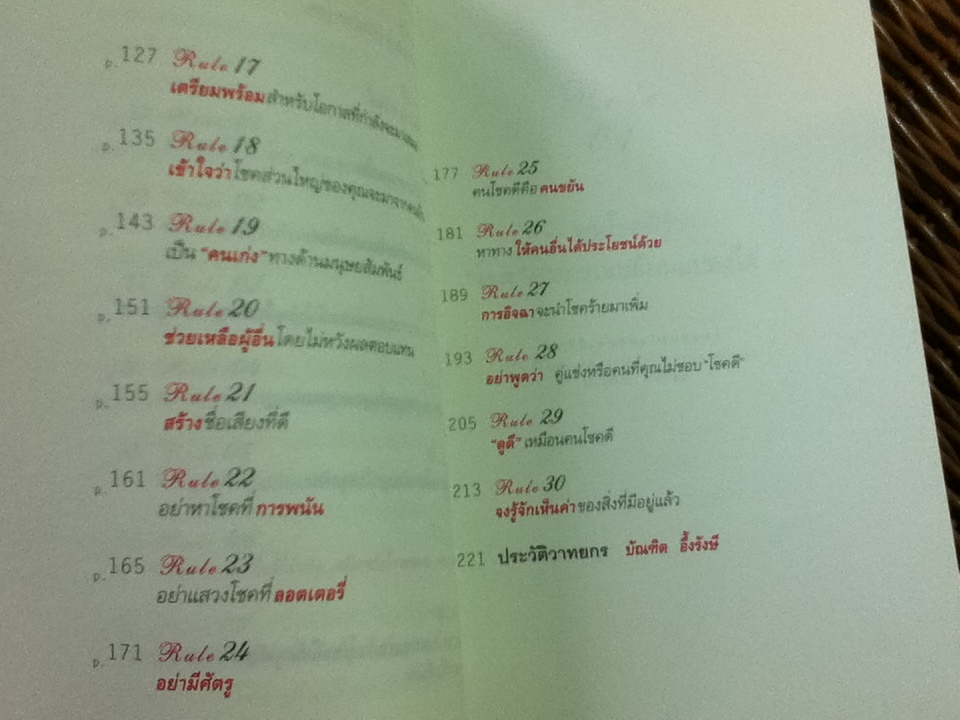 p.127 Rule 17
เตรียมพร้อมสำหรับโอกาสที่กำลังจะมาเสมอ
p.135 Rule 18
เข้าใจว่าโชคส่วนใหญ่ของคุณจะมาจาก
p.143 Rule 19
เป็น "คนเก่ง" ทางด้านมนุษยสัมพันธ์
p.151 Rule 20
ช่วยเหลือผู้อื่นโดยไม่หวังผลตอบแทน
p.155 Rule 21
สร้างชื่อเสียงที่ดี
p.161 Rule 22
อย่าหาโชคที่การพนัน
p.165 Rule 23
อย่าแสวงโชคที่ลอตเตอรี่
p.171 Rule 24
อย่ามีศัตรู
177 Rule 25
คนโชคดีคือ คนขยัน
181 Rule 26
หาทาง ให้คนอื่นได้ประโยชน์ด้วย
189 Rule 27
การอิจฉา จะนำโชคร้ายมาเพิ่ม
193 Rule 28
อย่าพูดว่า คู่แข่งหรือคนที่คุณไม่ชอบ "โชคดี"
205 Rule 29
"ดูดี" เหมือนคนโชคดี
213 Rule 30
จงรู้จักเห็นค่า ของสิ่งที่มีอยู่แล้ว
221 ประวัติวาทยกร บัณฑิต อึ้งรังษี